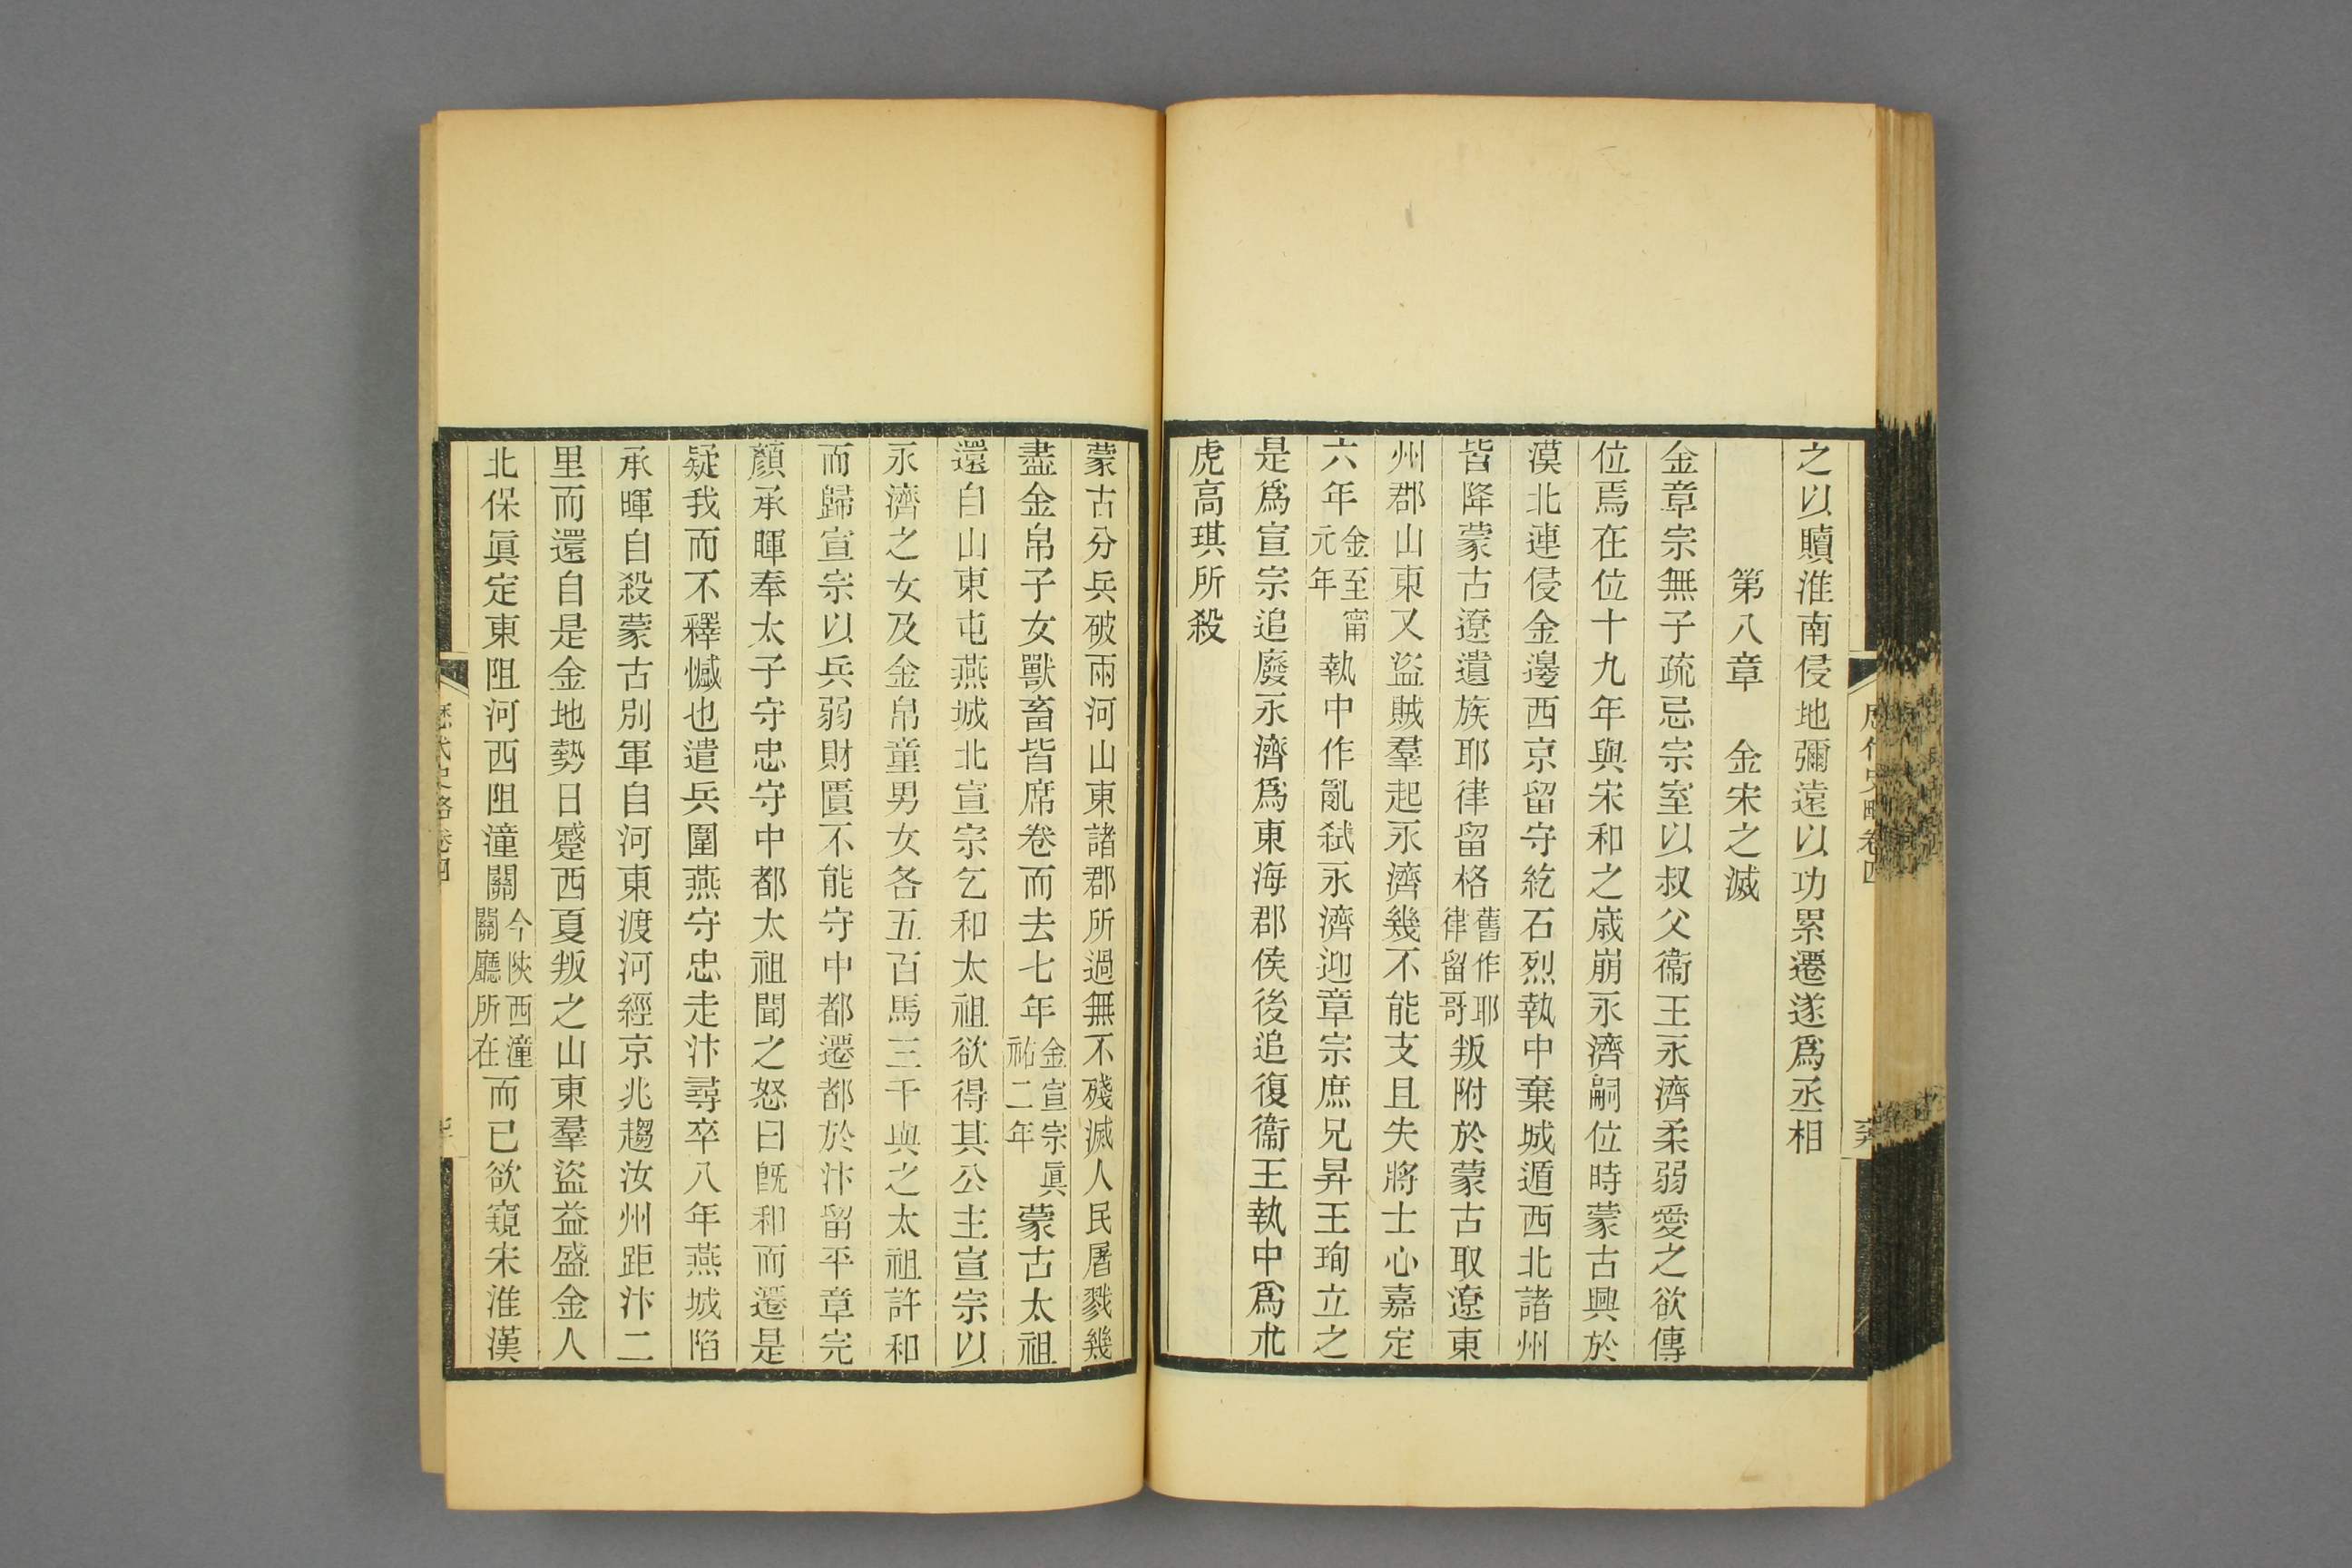 之以贖淮南侵地彌遠以功累遷遂爲丞相
第八章　金宋之滅
金章宗無子疏忌宗室以叔父衞王永濟柔弱愛之欲傳
位焉在位十九年與宋和之歲崩永濟嗣位時蒙古興於
漠北連侵金邊西京留守紇石烈執中棄城遁西北諸州
皆降蒙古遼遺族耶律留格舊作耶律留哥叛附於蒙古取遼東
州郡山東又盜賊羣起永濟幾不能支且失將士心嘉定
六年金至甯元年執中作亂弑永濟迎章宗庶兄昇王珣立之
是爲宣宗追廢永濟爲東海郡侯後追復衞王執中爲朮
虎高琪所殺
蒙古分兵破兩河山東諸郡所過無不殘滅人民屠戮幾
盡金帛子女獸畜皆席卷而去七年金宣宗眞祐二年蒙古太祖
還自山東屯燕城北宣宗乞和太祖欲得其公主宣宗以
永濟之女及金帛童男女各五百馬三千與之太祖許和
而歸宣宗以兵弱財匱不能守中都遷都於汴留平章完
顏承暉奉太子守忠守中都太祖聞之怒曰旣和而遷是
疑我而不釋憾也遣兵圍燕守忠走汴尋卒八年燕城陷
承暉自殺蒙古別軍自河東渡河經京兆趨汝州距汴二
里而還自是金地勢日蹙西夏叛之山東羣盜益盛金人
北保眞定東阻河西阻潼關今陝西潼關廳所在而已欲窺宋淮漢
歷代史略卷四